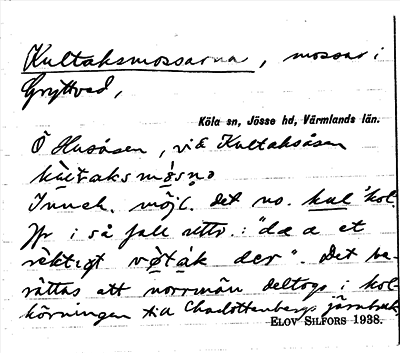 Kultaksmossarna, mossar i
Gryttved,
Köla sn, Jösse hd, Värmlands län.
Ö Husåsen, vid Kultaksåsen
Inneh. möjl. det no. kul 'kol'.
Jfr i så fall uttr.: "dæ a et
Det be-
rättas att norrmän deltogo i kol-
körningen till Charlottenbergs järnbruk.
ELOV SILFORS 1938.